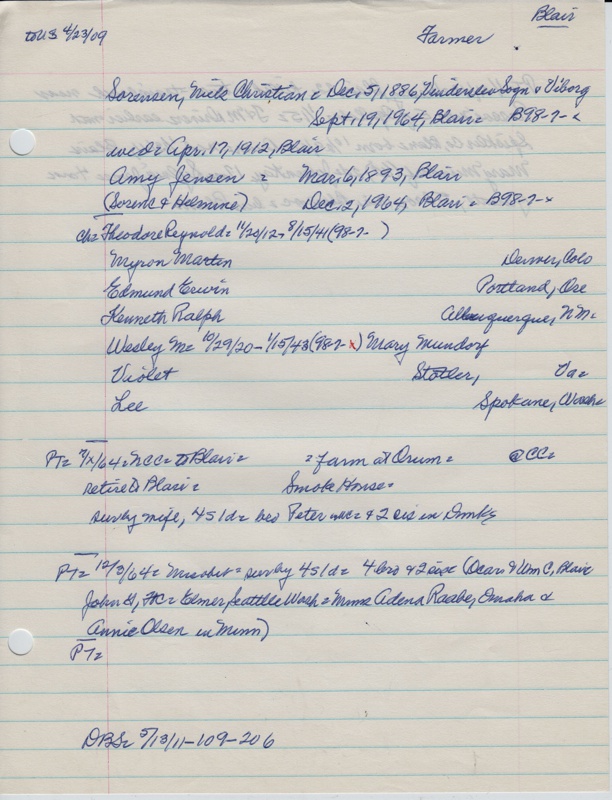 Blair
to US 4/23/09 Farmer
Sorensen, Niels Christian = Dec, 5, 1886, Sogn Viborg
Sept. 19, 1964, Blair = B98-7-
wed = Apr. 17, 1912, Blair
Amy Jensen = Mar. 6, 1893, Blair
(Sorenc & Helmine) Dec. 2, 1964, Blair = B98-7-x
ch = Theodore Reynold = 11/20/12 - 8/15/41 (98-7- )
Myron Martin Denver, Colo
Edmund Erwin Portland, Ore
Kenneth Ralph Albuquerque, NM
Wesley M = 10/29/20 - 1/15/43 (98-7-x) Mary Mundorf
Violet Stotler, Va =
Lee Spokane, Wash =
PT = 64 = NCC = to Blair = = farm at Orum = @ CC =
retire to Blair = Smoke House =
surby wife, 4s 1d = bro Peter & 2 sis in Dmk
PT = 12/3/64 = = surby 4s 1d = 4 bro & 2 sis (Oscar & Wm C, Blair
John H, FC = Elmer, Seattle Wash = Mmes Adena Raabe, Omaha &
Annie Olsen in Minn)
PT =
DBS = 5/13/11-109-206